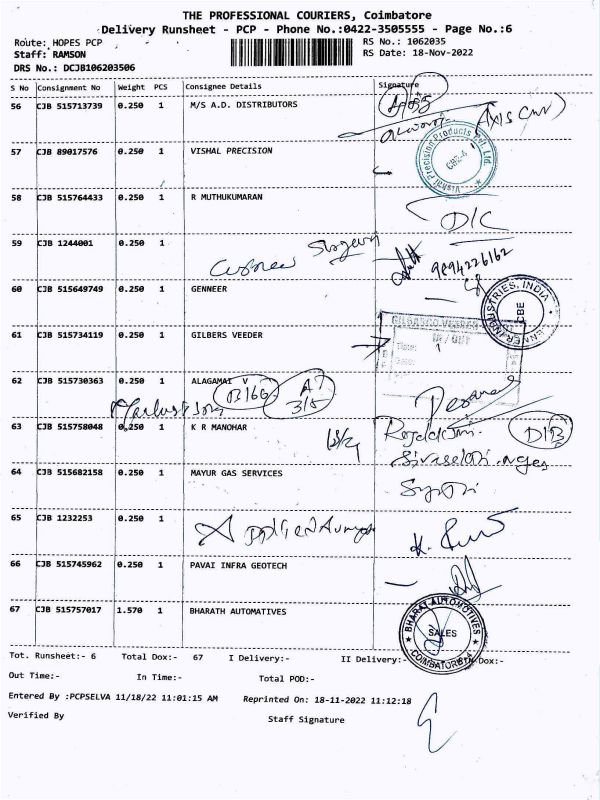 THE PROFESSIONAL COURIERS, Coimbatore
Delivery Runsheet - PCP - Phone No.:0422-3505555 - Page No.:6
Route: HOPES PCP
RS No.: 1062035
Staff: RAMSON
RS Date: 18-Nov-2022
DRS No.: DCJB106203506
S No Consignment No Weight PCS Consignee Details Signature
56 CJB 515713739 0.250 1 M/S A.D. DISTRIBUTORS
Axis
57 CJB 89017576 0.250 1 VISHAL PRECISION
Vishal Precision Products Pvt. Ltd. CBE-4
58 CJB 515764433 0.250 1 R MUTHUKUMARAN
D/C
59 CJB 1244001 0.250 1
9894226162
60 CJB 515649749 0.250 1 GENNEER
INDUSTRIES, INDIA CBE
61 CJB 515734119 0.250 1 GILBERS VEEDER
IN / OUT
62 CJB 515730363 0.250 1 ALAGAMAI V
63 CJB 515758048 0.250 1 K R MANOHAR
64 CJB 515682158 0.250 1 MAYUR GAS SERVICES
65 CJB 1232253 0.250 1
66 CJB 515745962 0.250 1 PAVAI INFRA GEOTECH
67 CJB 515757017 1.570 1 BHARATH AUTOMATIVES
BHARAT AUTOMOTIVES SALES COIMBATORE
Tot. Runsheet:- 6 Total Dox:- 67 I Delivery:- II Delivery:- Dox:-
Out Time:- In Time:- Total POD:-
Entered By :PCPSELVA 11/18/22 11:01:15 AM Reprinted On: 18-11-2022 11:12:18
Verified By Staff Signature